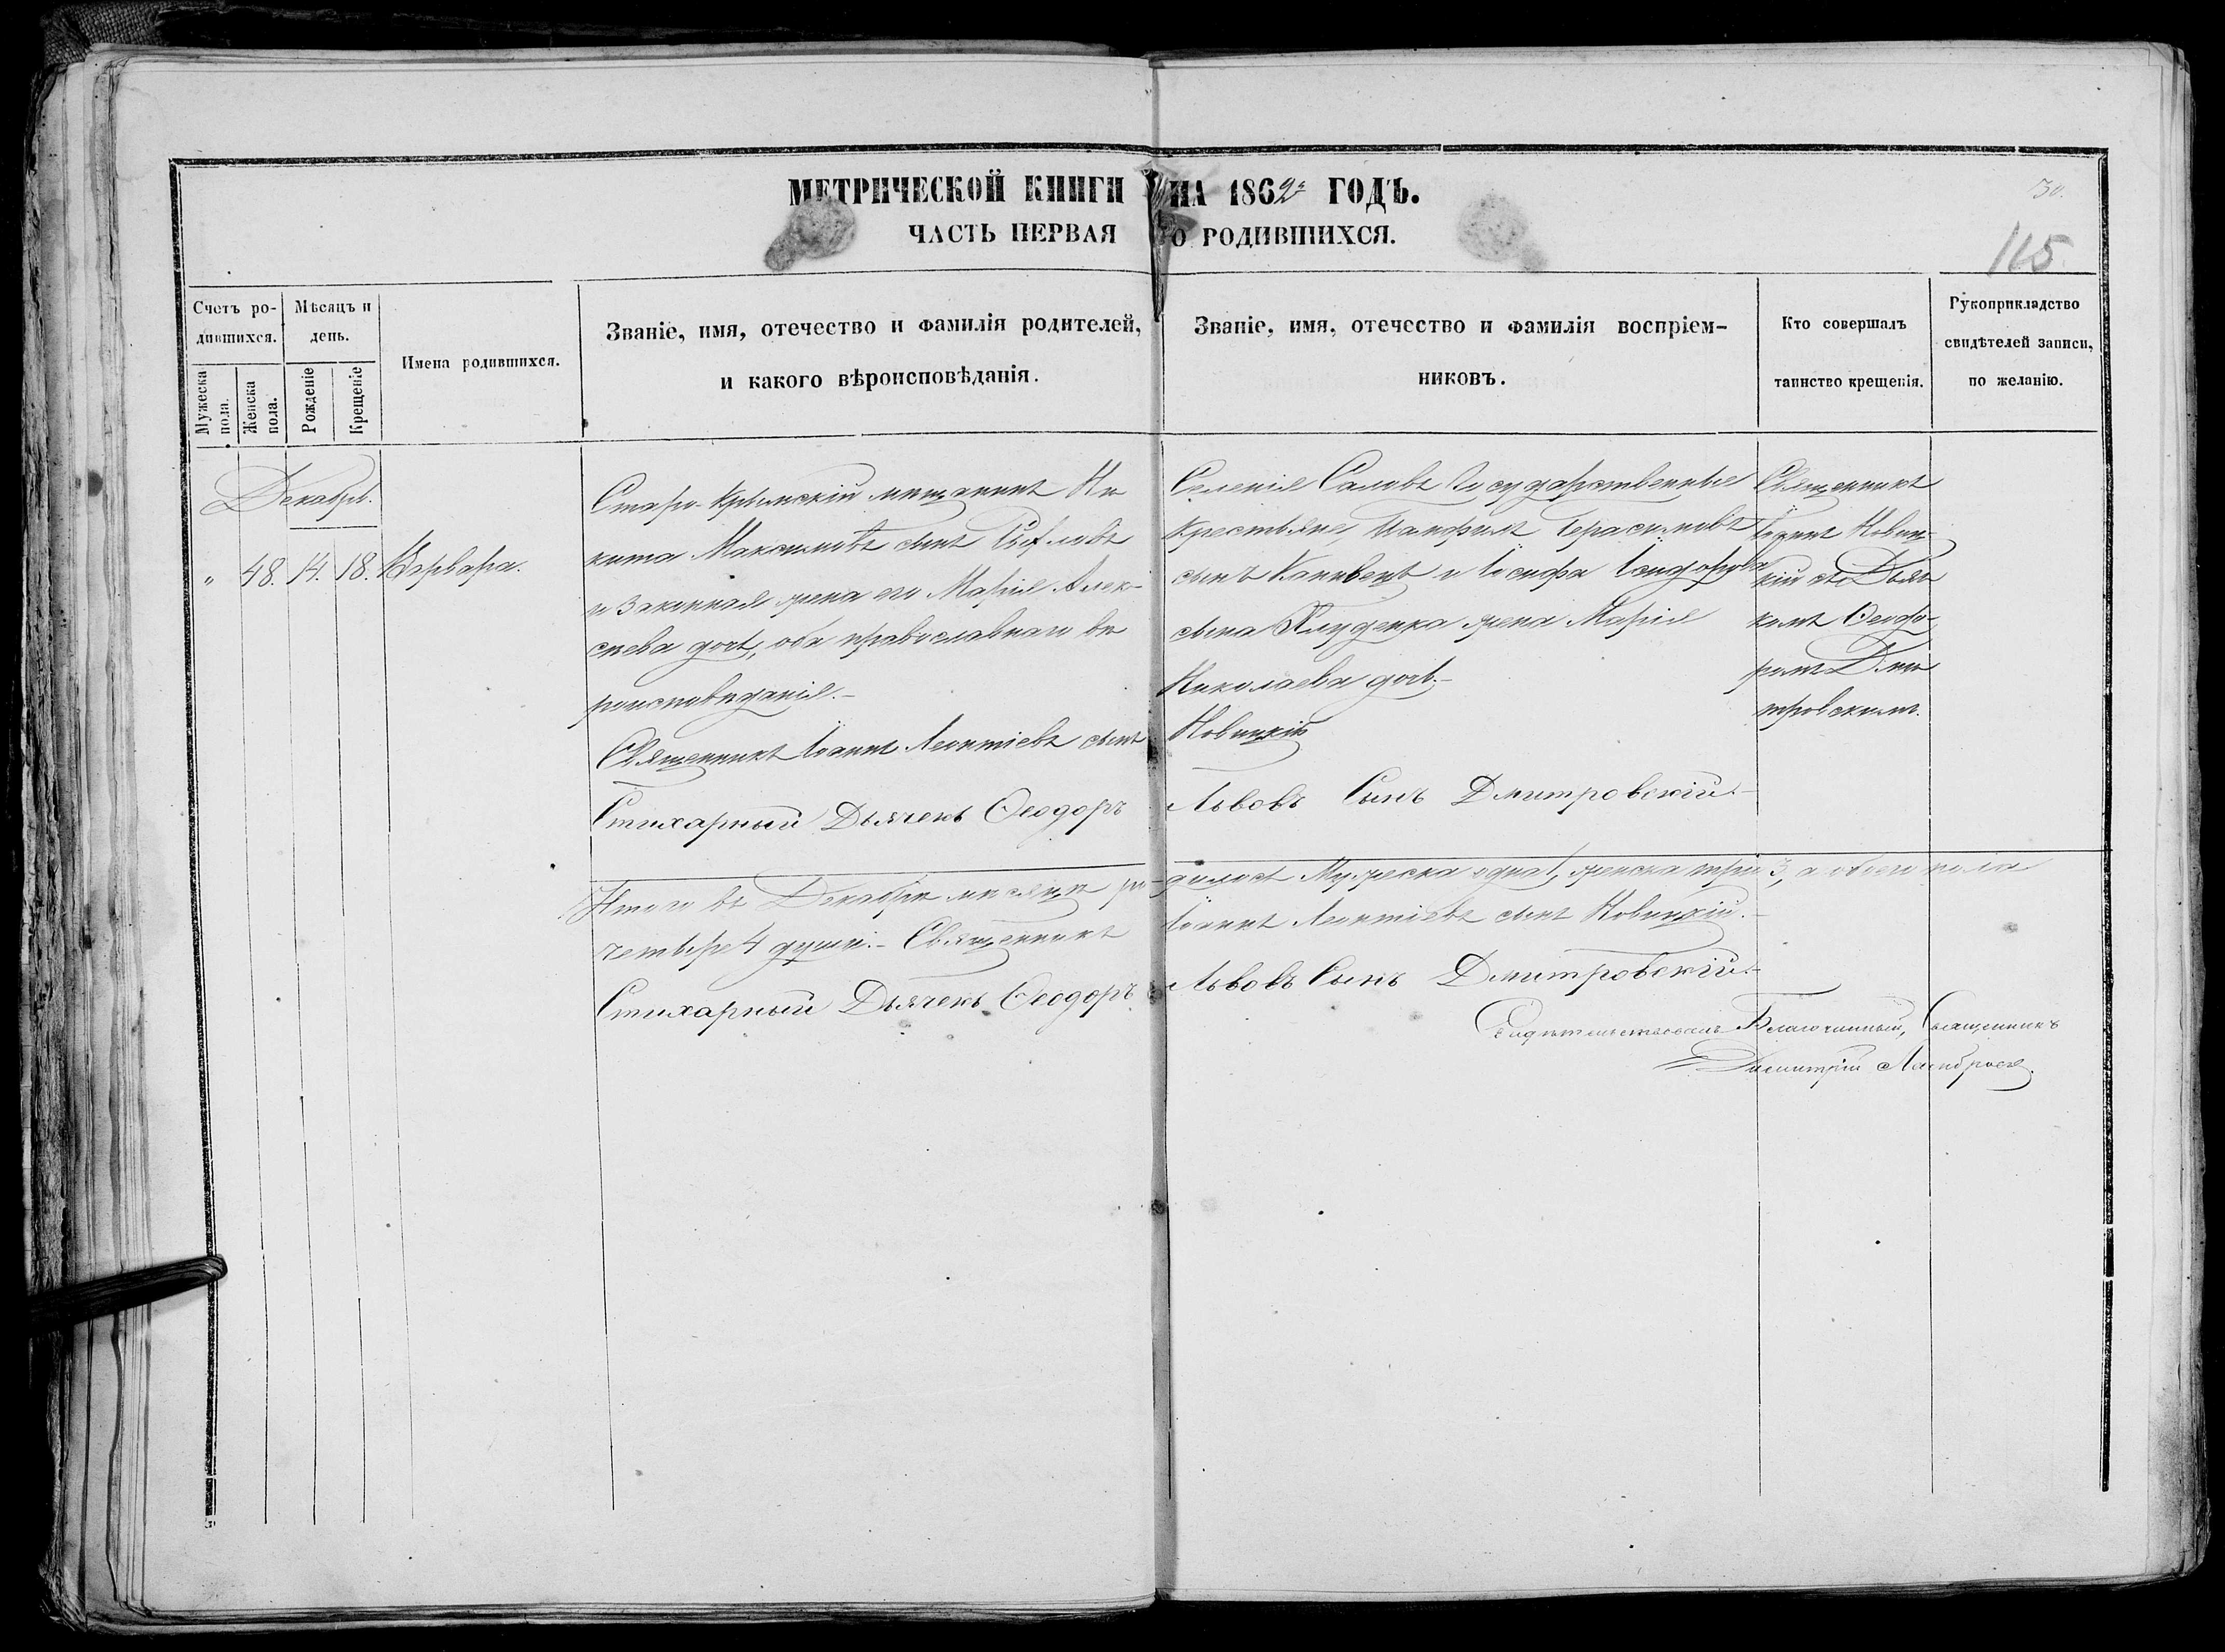 МЕТРИЧЕСКОЙ КНИГИ НА 1862й ГОДЪ.
30.
ЧАСТЬ ПЕРВАЯ О РОДИВШИХСЯ.
115
Счетъ ро-
дившихся.
Мужеска пола.
Женска пола.
Мѣсяцъ и
день.
Рожденіе
Крещеніе
Имена родившихся.
Званіе, имя, отечество и фамилія родителей,
и какого вѣроисповѣданія.
Званіе, имя, отечество и фамилія воспріем-
никовъ.
Кто совершалъ
таинство крещенія.
Рукоприкладство
свидѣтелей записи,
по желанію.
Декабрь.
" 48. 14. 18. Варвара.
Старо-Крымскій мещанинъ Ни
кита Максимовъ сынъ
и законная жена его Марія Алек-
сеева дочь, оба православнаго ве
роисповеданія.-
Священникъ Іоаннъ Леонтіевъ сынъ
Стихарный Дьячекъ Ѳеодоръ
Селенія Саловъ Государственные
крестьяне, Панфилъ Герасимовъ
сынъ и Іосифа Ісидорова
сына жена Марія
Николаева дочь.-
Новицкій
Львовъ Сынъ Дмитровскій.-
Священникъ
Іоаннъ Новиц-
кій съ Дьяч
комъ Ѳеодо-
ромъ Дми
тровскимъ.
Итого въ Декабре месяце ро-дилось Мужеска одна 1, женска три 3, а обоего пола
четыре 4 души.- Священникъ Іоаннъ Леонтіевъ сынъ Новицкій.-
Стихарный Дьячекъ Ѳеодоръ Львовъ Сынъ Дмитровскій.-
Свидѣтельствовалъ Благочинный, Священникъ
Димитрій